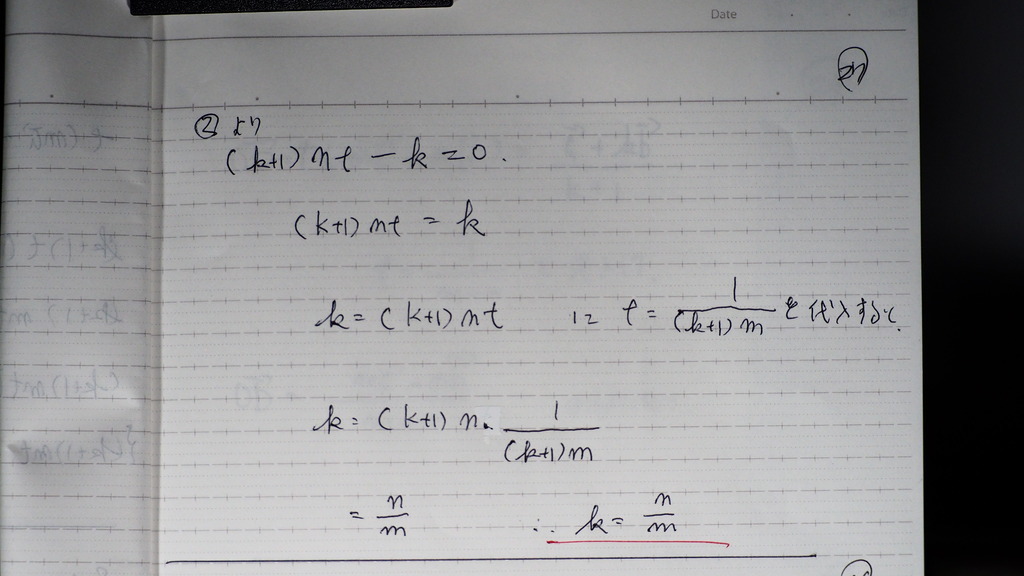 Date
② より
(k+1) nt - k = 0.
(k+1) nt = k
k = (k+1) nt に t = \frac{1}{(k+1) m} を代入すると.
k = (k+1) n \cdot \frac{1}{(k+1) m}
= \frac{n}{m} ∴ k = \frac{n}{m}